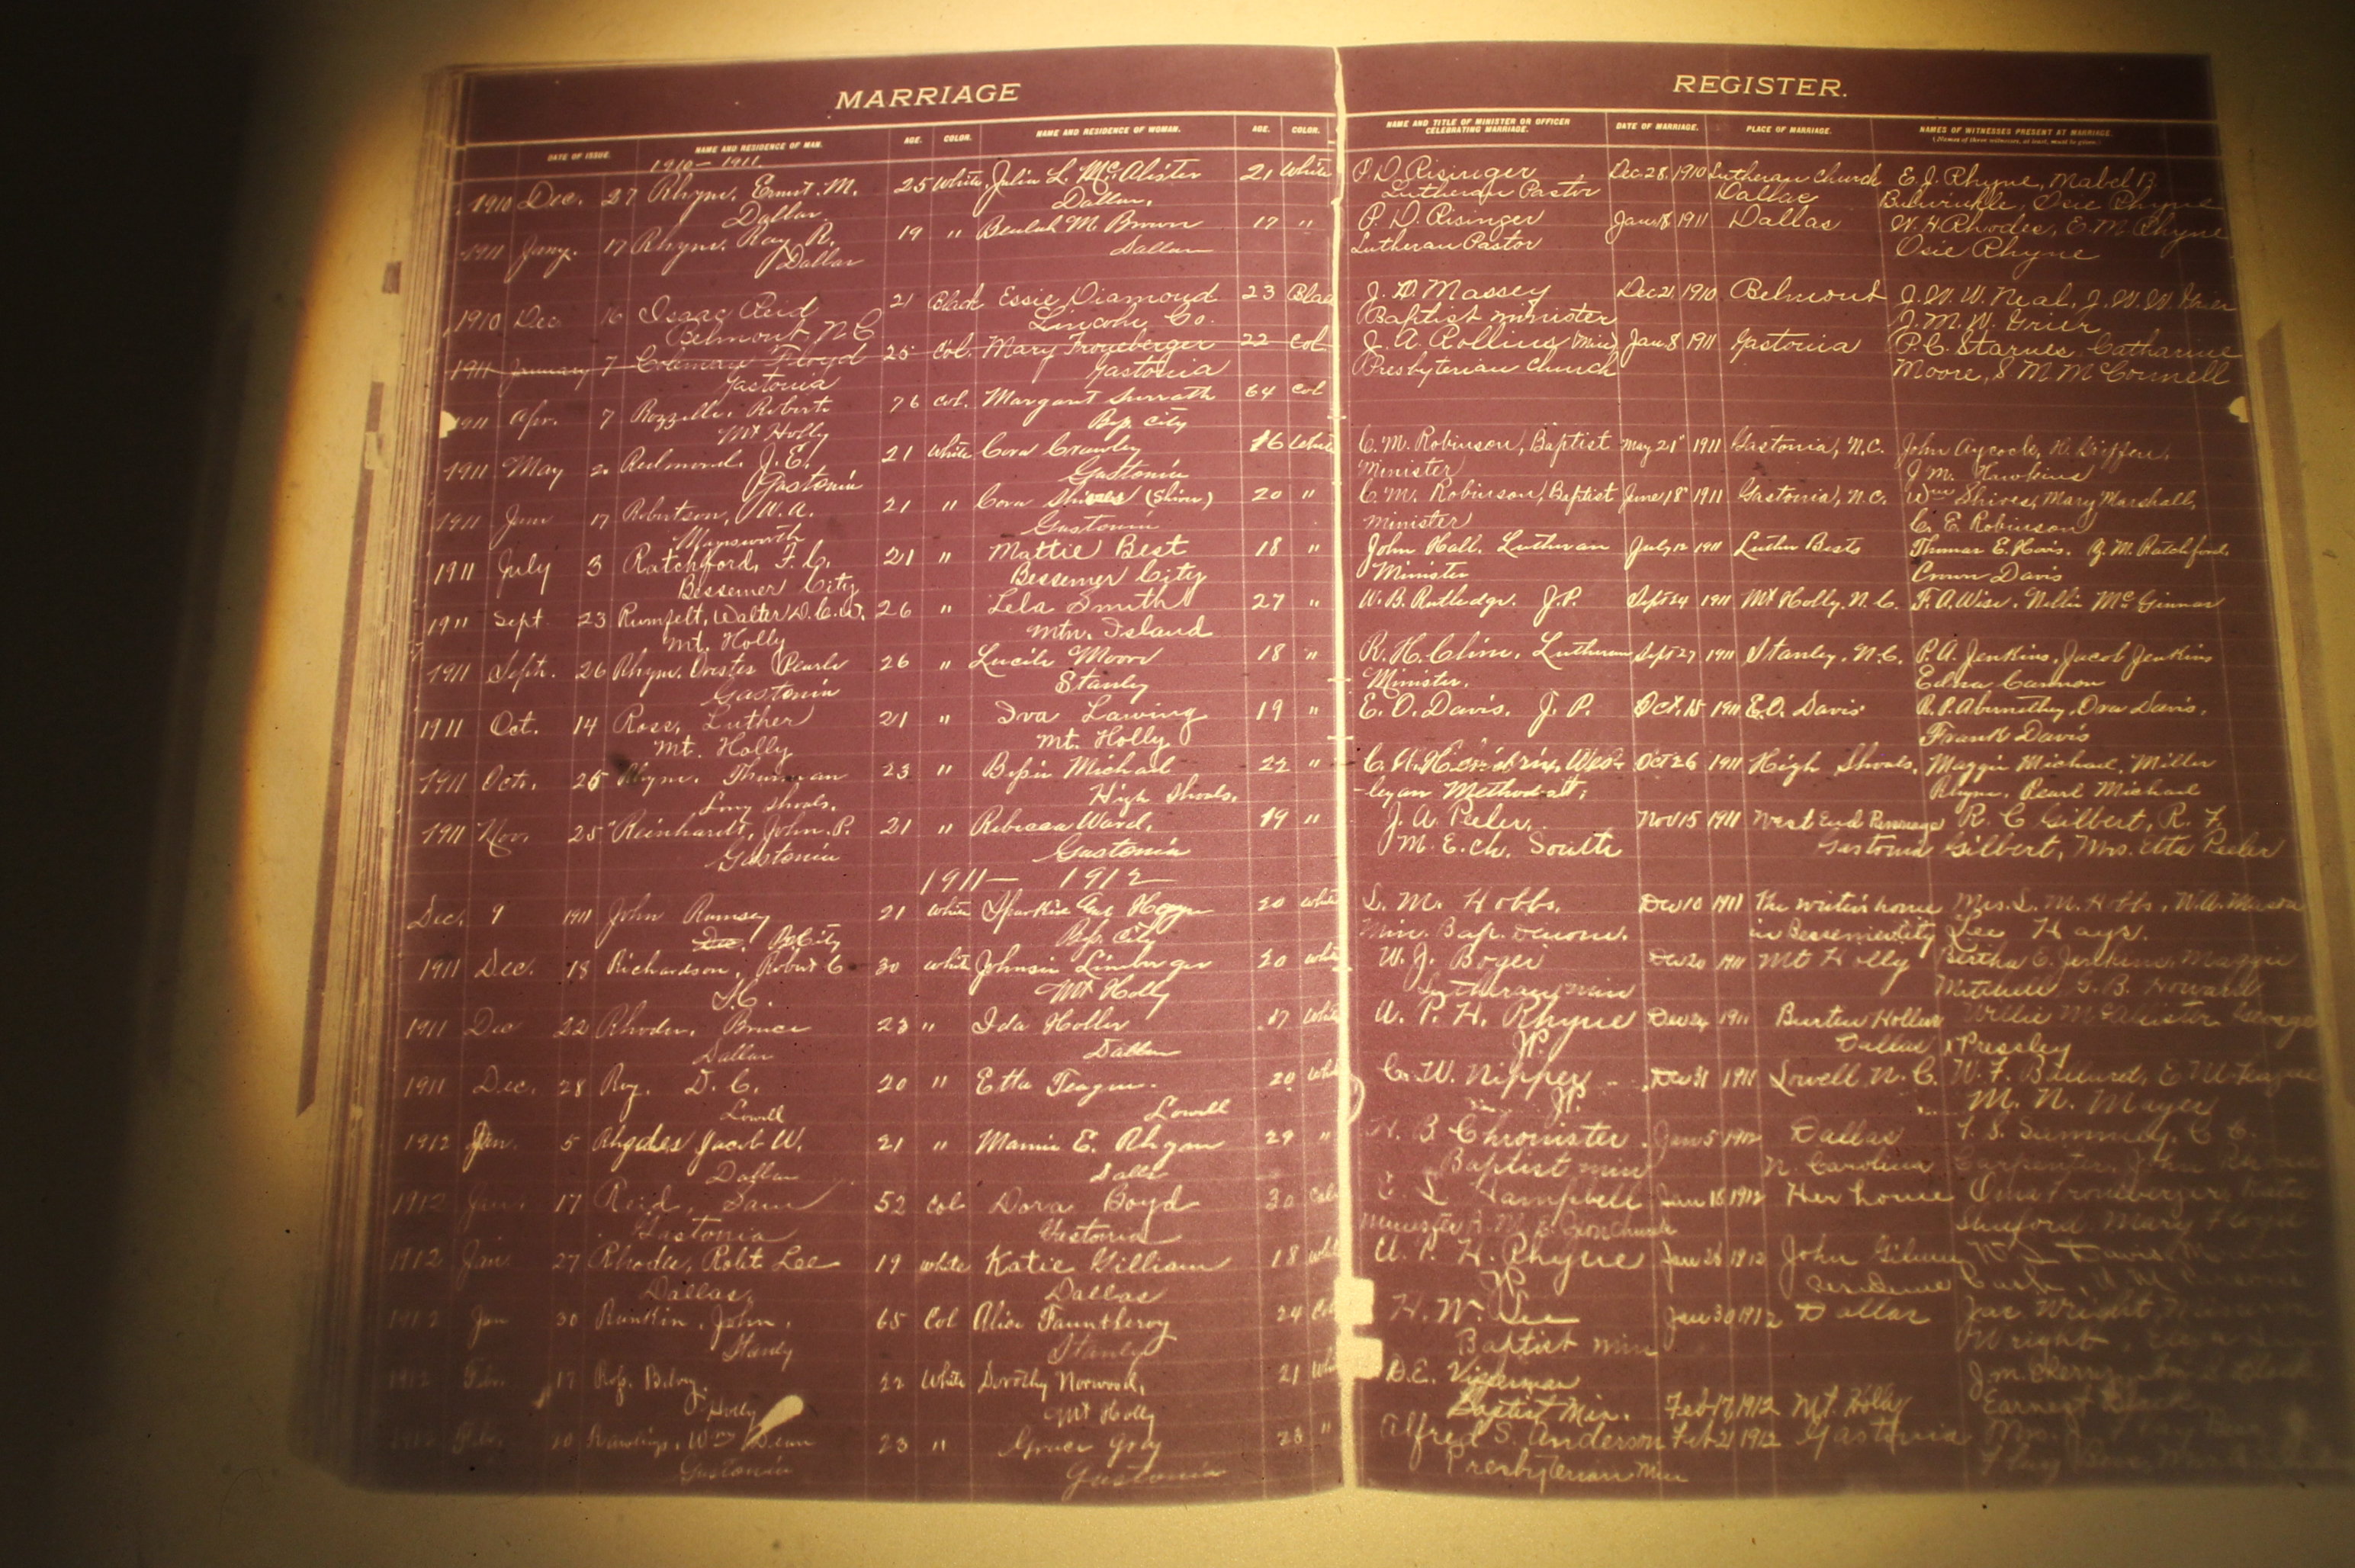 MARRIAGE
REGISTER.
DATE OF ISSUE. NAME AND RESIDENCE OF MAN. AGE. COLOR. NAME AND RESIDENCE OF WOMAN. AGE. COLOR.
NAME AND TITLE OF MINISTER OR OFFICER CELEBRATING MARRIAGE. DATE OF MARRIAGE. PLACE OF MARRIAGE. NAMES OF WITNESSES PRESENT AT MARRIAGE.
(Names of three witnesses, at least, must be given.)
1910 – 1911
1910 Dec. 27 Rhyne, Ernest M. 25 White Julia L. McAlister 21 White P. D. Risinger Dec. 28, 1910 Lutheran Church E. J. Rhyne, Mabel B.
Dallas Dallas. Lutheran Pastor Dallas Osie Rhyne
1911 Jany. 17 Rhyne, Ray R. 19 " Beulah M. Brown 17 " P. D. Risinger Jan 18 1911 Dallas W. H. Rhodes, E. M. Rhyne
Dallas Dallas Lutheran Pastor Osie Rhyne
1910 Dec 16 Isaac Reid 21 Black Essie Diamond 23 Blac J. D. Massey Dec 21, 1910 Belmont J. W. W. Neal, J. W. W. Grier
Belmont N C Lincoln Co. Baptist minister J. M. W. Grier
1911 January 7 Coleman Floyd 25 Col. Mary Froneberger 22 Col J. A. Rollins (Min) Jan. 8 1911 Gastonia P. C. Starnes, Catharine
Gastonia Gastonia Presbyterian Church Moore, S. M. McConnell
1911 Apr. 7 Rozzelle, Robert 76 col. Margaret 64 col
Mt Holly Bes. City
1911 May 2 Redmond, J. E. 21 White Cora Crawley 16 White C. M. Robinson, Baptist May 21" 1911 Gastonia, N.C. John Aycock,
Gastonia Gastonia Minister J. M. Hawkins
1911 June 17 Robertson, W. A. 21 " Cora (Shives) 20 " C. M. Robinson, Baptist June 18" 1911 Gastonia, N.C. Wm Shives, Mary Marshall,
Maysworth Gastonia minister C. E. Robinson
1911 July 3 Ratchford, F. C. 21 " Mattie Best 18 " John Hall. Lutheran July 12 1911 Luther Bests Thomas E. Y. M. Ratchford,
Bessemer City Bessemer City Minister Crown Davis
1911 Sept. 23 Rumfelt, Walter D. C. W. 26 " Lela Smith 27 " W. B. Rutledge. J.P. Sept 24 1911 Mt Holly, N. C. F. A. Wise, Nellie McGinnas
Mt. Holly Mtn. Island
1911 Sept. 26 Rhyne, Orestes Pearle 26 " Lucile Moore 18 " R. H. Cline, Lutheran Sept 27 1911 Stanley, N.C. P. A. Jenkins, Jacob Jenkins
Gastonia Stanly Minister. Edna Cannon
1911 Oct. 14 Ross, Luther 21 " Iva Lawing 19 " E. O. Davis. J. P. Oct. 15 1911 E. O. Davis R. P. Abernethy, Ora Davis,
Mt. Holly Mt. Holly Frank Davis
1911 Oct. 25 Rhyne, Thurman 23 " Bessie Michael 22 " C. A. Wes- Oct 26 1911 High Shoals, Maggie Michael, Miller
Long Shoals. High Shoals. -leyan Methodist, Rhyne, Pearl Michael
1911 Nov. 25 Reinhardt, John P. 21 " Rebecca Ward, 19 " J. A. Peeler, Nov 15 1911 West End Parsonage R. C Gilbert, R. F.
Gastonia Gastonia M. E. Ch. South Gastonia Gilbert, Mrs. Etta Peeler
1911 – 1912
Dec. 9 1911 John Ramsey 21 White 20 white L. M. Hobbs, Dec 10 1911 The writer's home Mrs. L. M. Hobbs, W. A. Mason
Bes City Bes. City Min. Bap. Denom. in Bessemer City Lee Hays.
1911 Dec. 18 Richardson, Robert C 30 white Johnsie Lineberger 20 white W. J. Boger Dec 20 1911 Mt Holly Bertha C. Jenkins, Maggie
S. C. Mt Holly Lutheran min Mitchell, S. B. Howard
1911 Dec 22 Rhodes, Bruce 23 " Ida Holler 17 White A. P. H. Rhyne Dec 24 1911 Burton Holler Willie McCallister George
Dallas Dallas JP. Dallas Pressley
1911 Dec. 28 Roy, D. C. 20 " Etta Teague. 20 White G. W. Nipper Dec 31 1911 Lowell N. C. W. F. Ballard,
Lowell Lowell JP. M. N. Mayer
1912 Jan. 5 Rhodes, Jacob W. 21 " Mamie E. Rhyne 29 " H. B Chronister Jan 5 1912 Dallas
Dallas Dallas Baptist min N. Carolina Carpenter, John
1912 Jan. 17 Reid, Sam 52 col Dora Boyd 30 Col E. L. Campbell Jan 18 1912 Her home Oma Froneberger, Katie
Gastonia Gastonia minister A. M. E. Zion Church Shuford, Mary Floyd
1912 Jan 27 Rhodes, Robt. Lee 19 white Katie Gilliam 18 white A. P. H. Rhyne Jan 28 1912 John
Dallas, Dallas JP residence
1912 Jan 30 Rankin, John, 65 Col Alice Fauntleroy 24 Col H. W. Lee Jan 30 1912 Dallas Jas. Wright,
Stanly Stanly Baptist min Wright,
1912 Feb. 17 22 White Dorothy Norwood, 21 White D. E. Feb 17, 1912 Mt. Holly J. M. Cherry,
Mt Holly Baptist Min. Earnest
20 Rawlings, Wm 23 " Grace 23 " Alfred S. Anderson Feb 21 1912 Gastonia Mrs.
Gastonia Gastonia Presbyterian Min